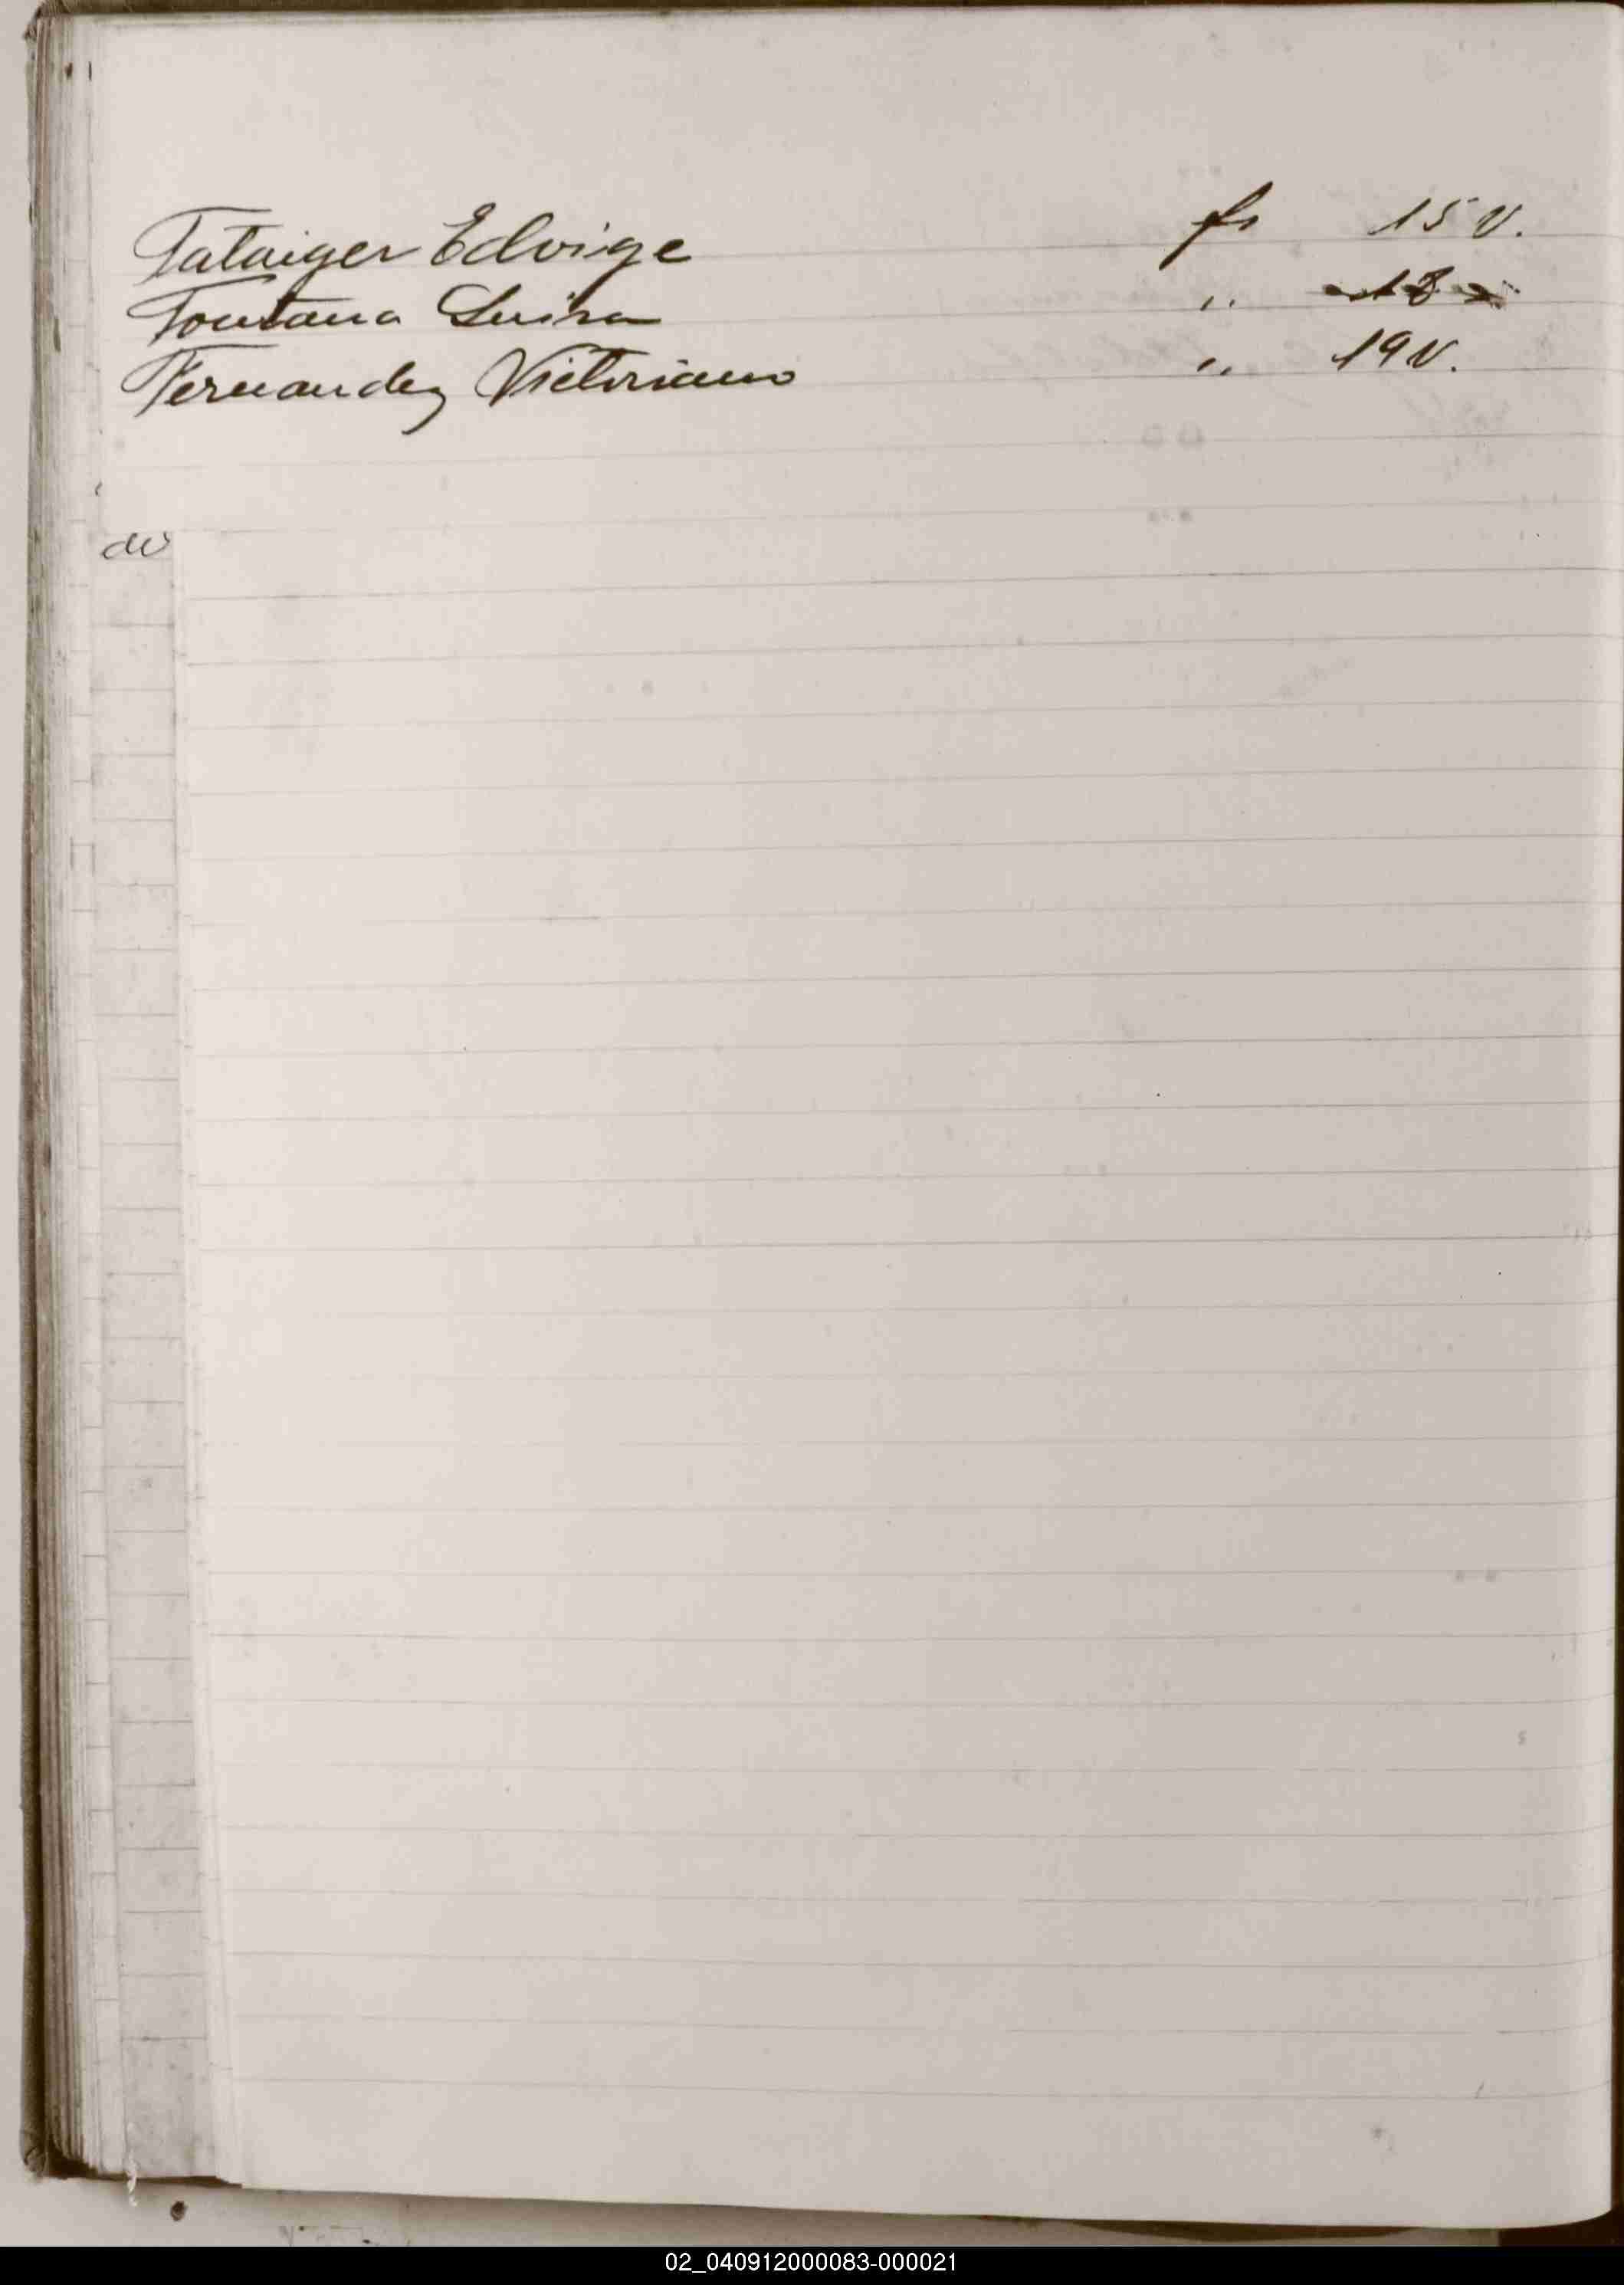 Fataiger Edvige fs 15 V.
Fontana Luisa ,, 18
Fernandez Victoriano ,, 19 V.
02_040912000083-000021